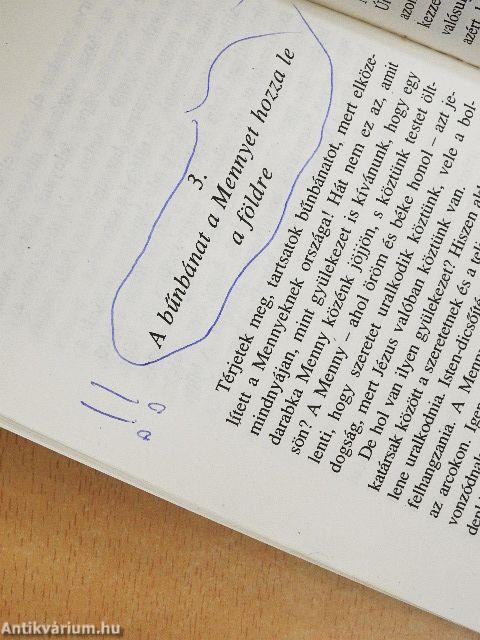 3.
A bűnbánat a Mennyet hozza le
a földre
Térjetek meg, tartsatok bűnbánatot, mert elköze-
lített a Mennyeknek országa! Hát nem ez az, amit
mindnyájan, mint gyülekezet is kívánunk, hogy egy
darabka Menny közénk jöjjön, s köztünk testet ölt-
sön? A Menny – ahol öröm és béke honol – azt je-
lenti, hogy szeretet uralkodik köztünk, vele a bol-
dogság, mert Jézus valóban köztünk van.
De hol van ilyen gyülekezet? Hiszen
katársak között a szeretetnek és a
lene uralkodnia. Isten-dicsőíté
felhangzania. A Menn
az arcokon. Igen
vonzódnak
!!
azon
kezze
valósu
azért
Antikvárium.hu